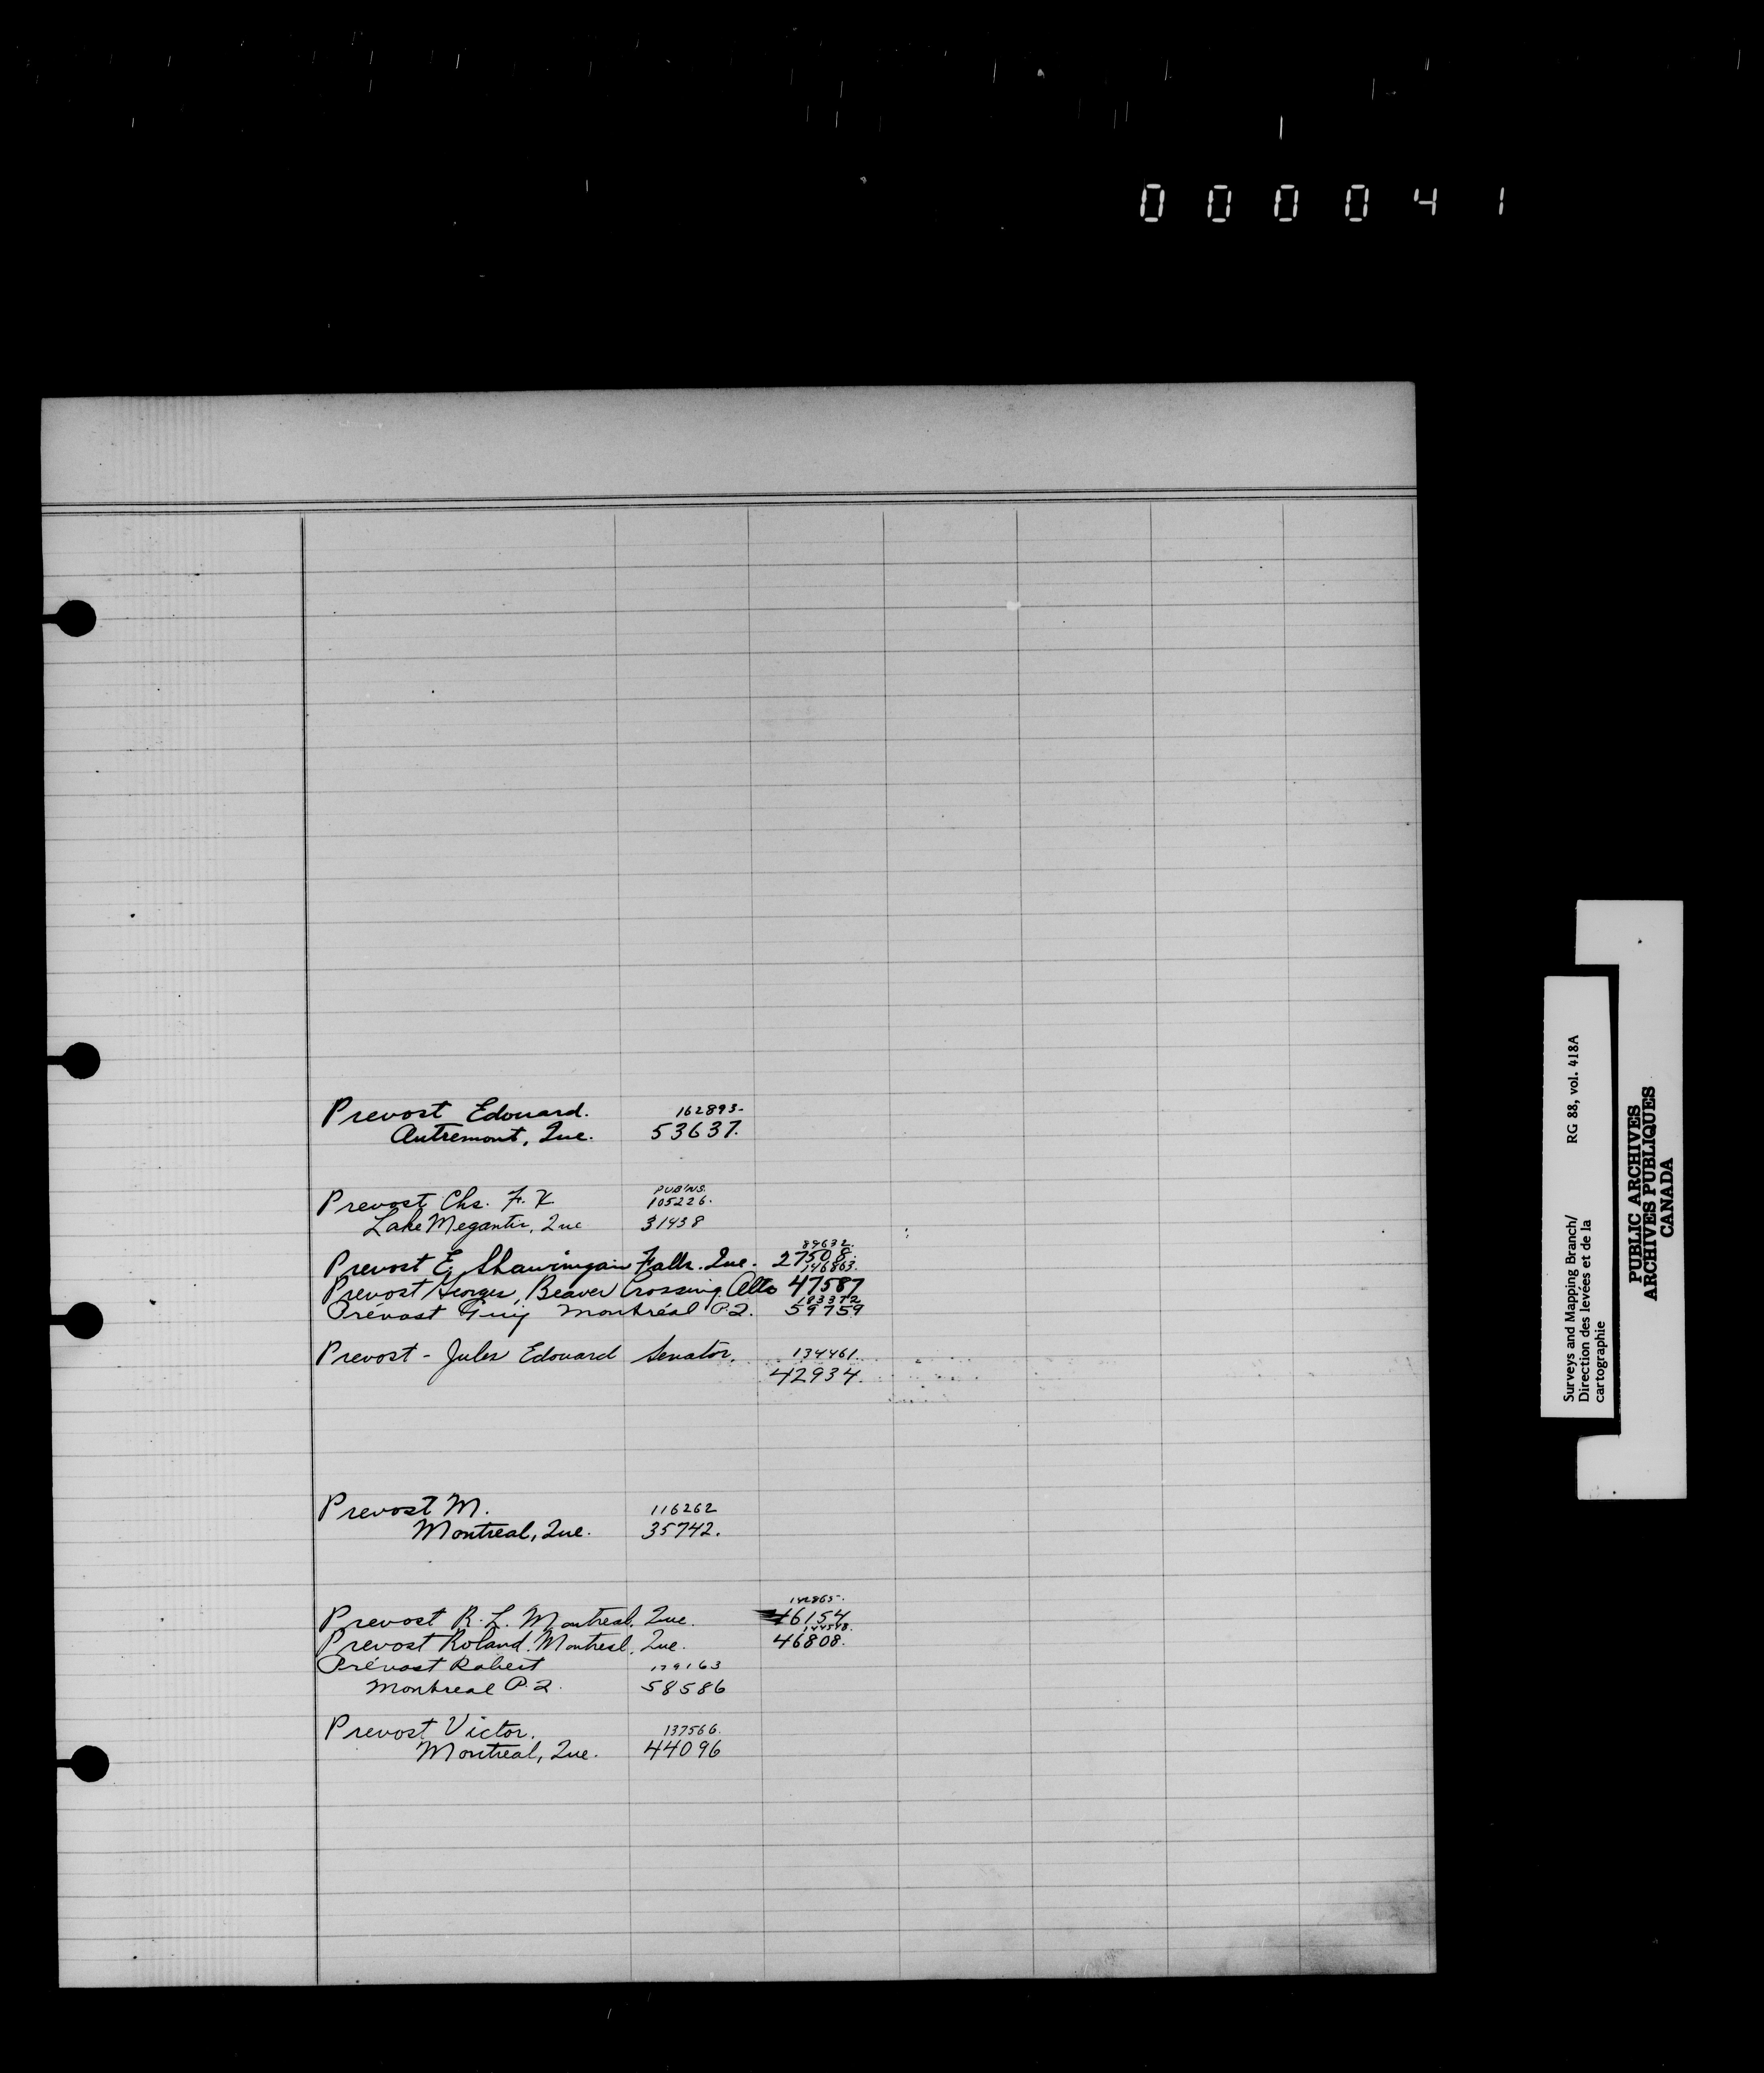 000041
Prevost Edouard. 162893-
Outremont, Que. 53637.
PUB'NS.
Prevost Chs. F. X. 105226.
Lake Megantic, Que 31438
89632.
Prevost E. Shawinigan Falls. Que. 27508.
146863.
Prevost Georges, Beaver Crossing Alta 47587
183372
Prévost Guy Montréal P.Q. 59759
Prevost - Jules Edouard Senator. 134461.
42934.
Prevost M. 116262
Montreal, Que. 35742.
142865.
Prevost R. L. Montreal, Que. 46154
144548.
Prevost Roland. Montreal, Que. 46808.
Prévost Robert 179163
Montreal P.Q. 58586
Prevost Victor. 137566.
Montreal, Que. 44096
Surveys and Mapping Branch/ RG 88, vol. 418A
Direction des levées et de la
cartographie
PUBLIC ARCHIVES
ARCHIVES PUBLIQUES
CANADA